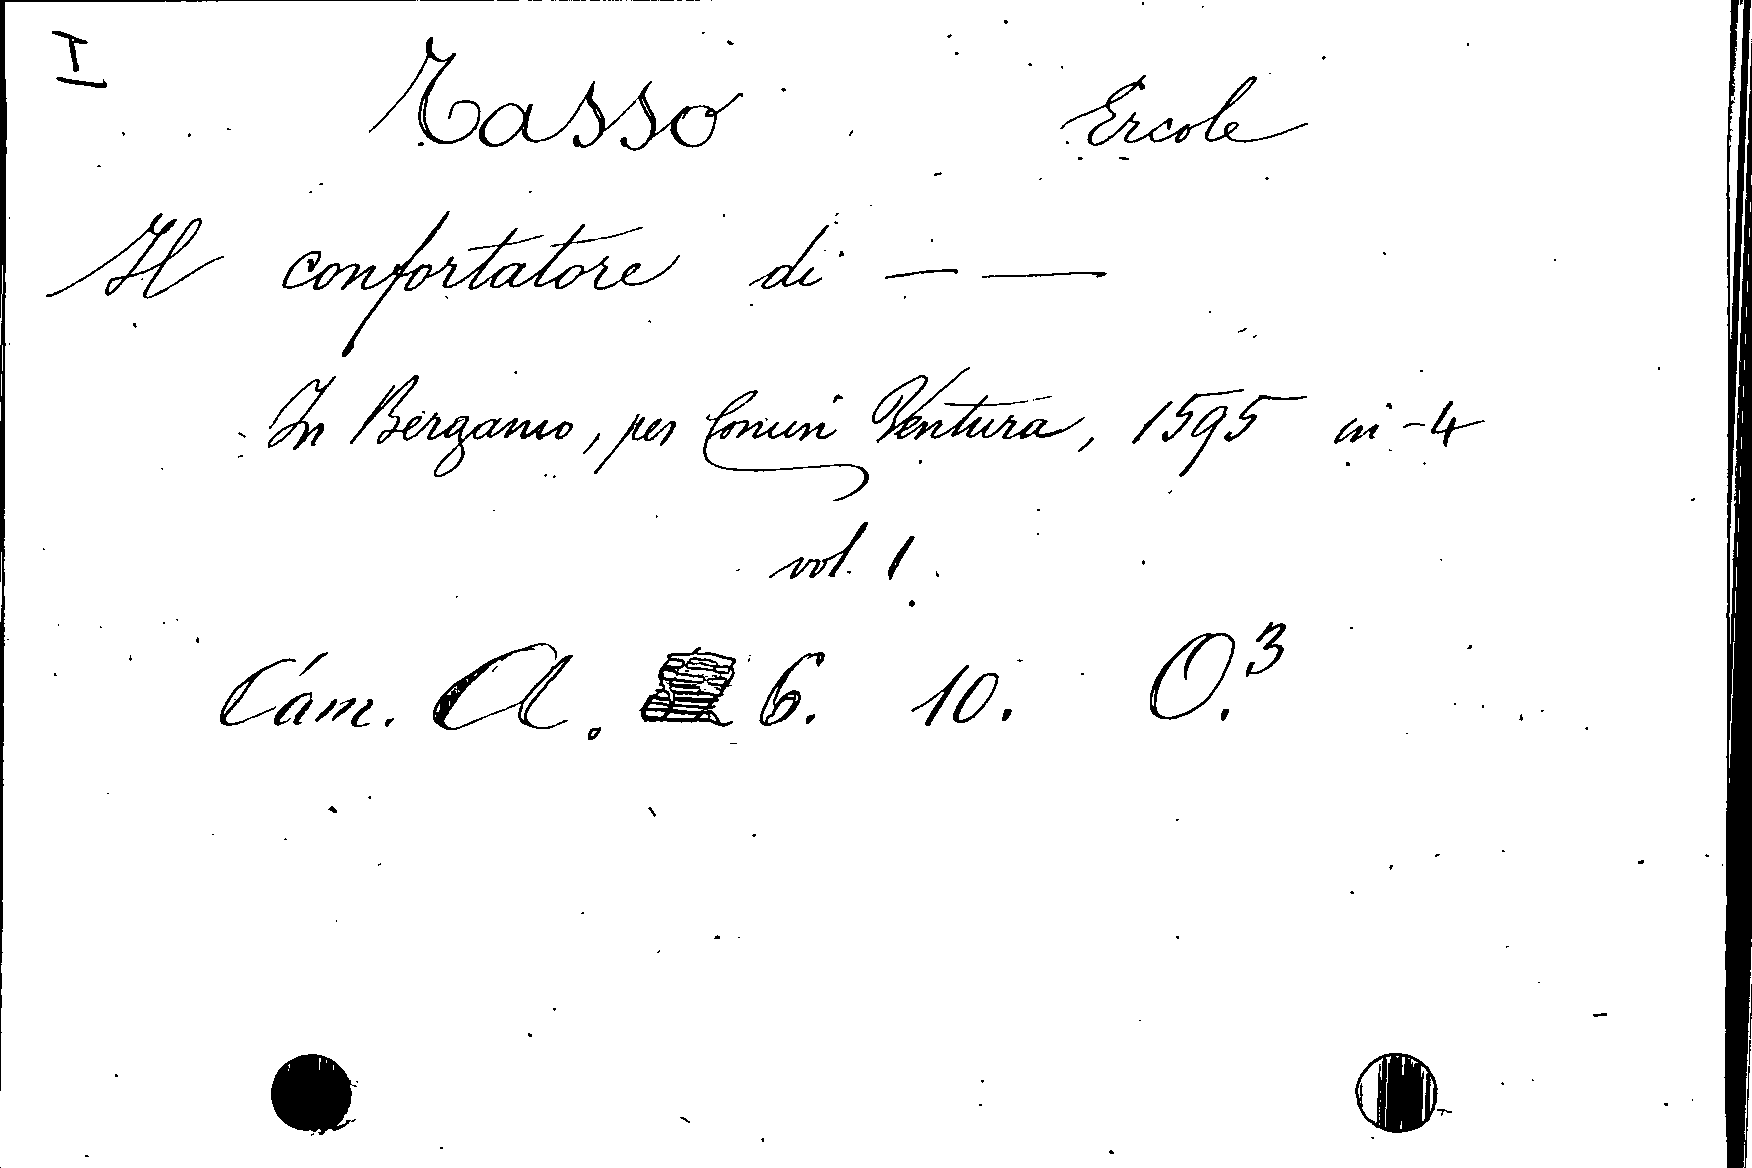 I
Tasso Ercole
Il confortatore di — —
In Bergamo, per Comin Ventura, 1595 in-4
vol. 1.
Cam. A. 6. 10. O.3